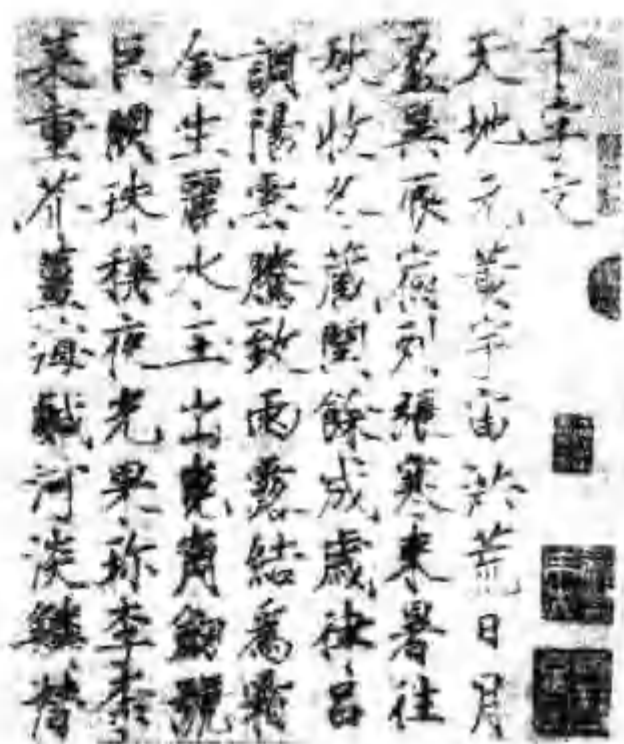 千字文
天地元黃宇宙洪荒日月
盈昃辰宿列張寒來暑往
秋收冬藏閏餘成歲律呂
調陽雲騰致雨露結為霜
金生麗水玉出崑崗劍號
巨闕珠稱夜光果珍李柰
菜重芥薑海鹹河淡鱗潛